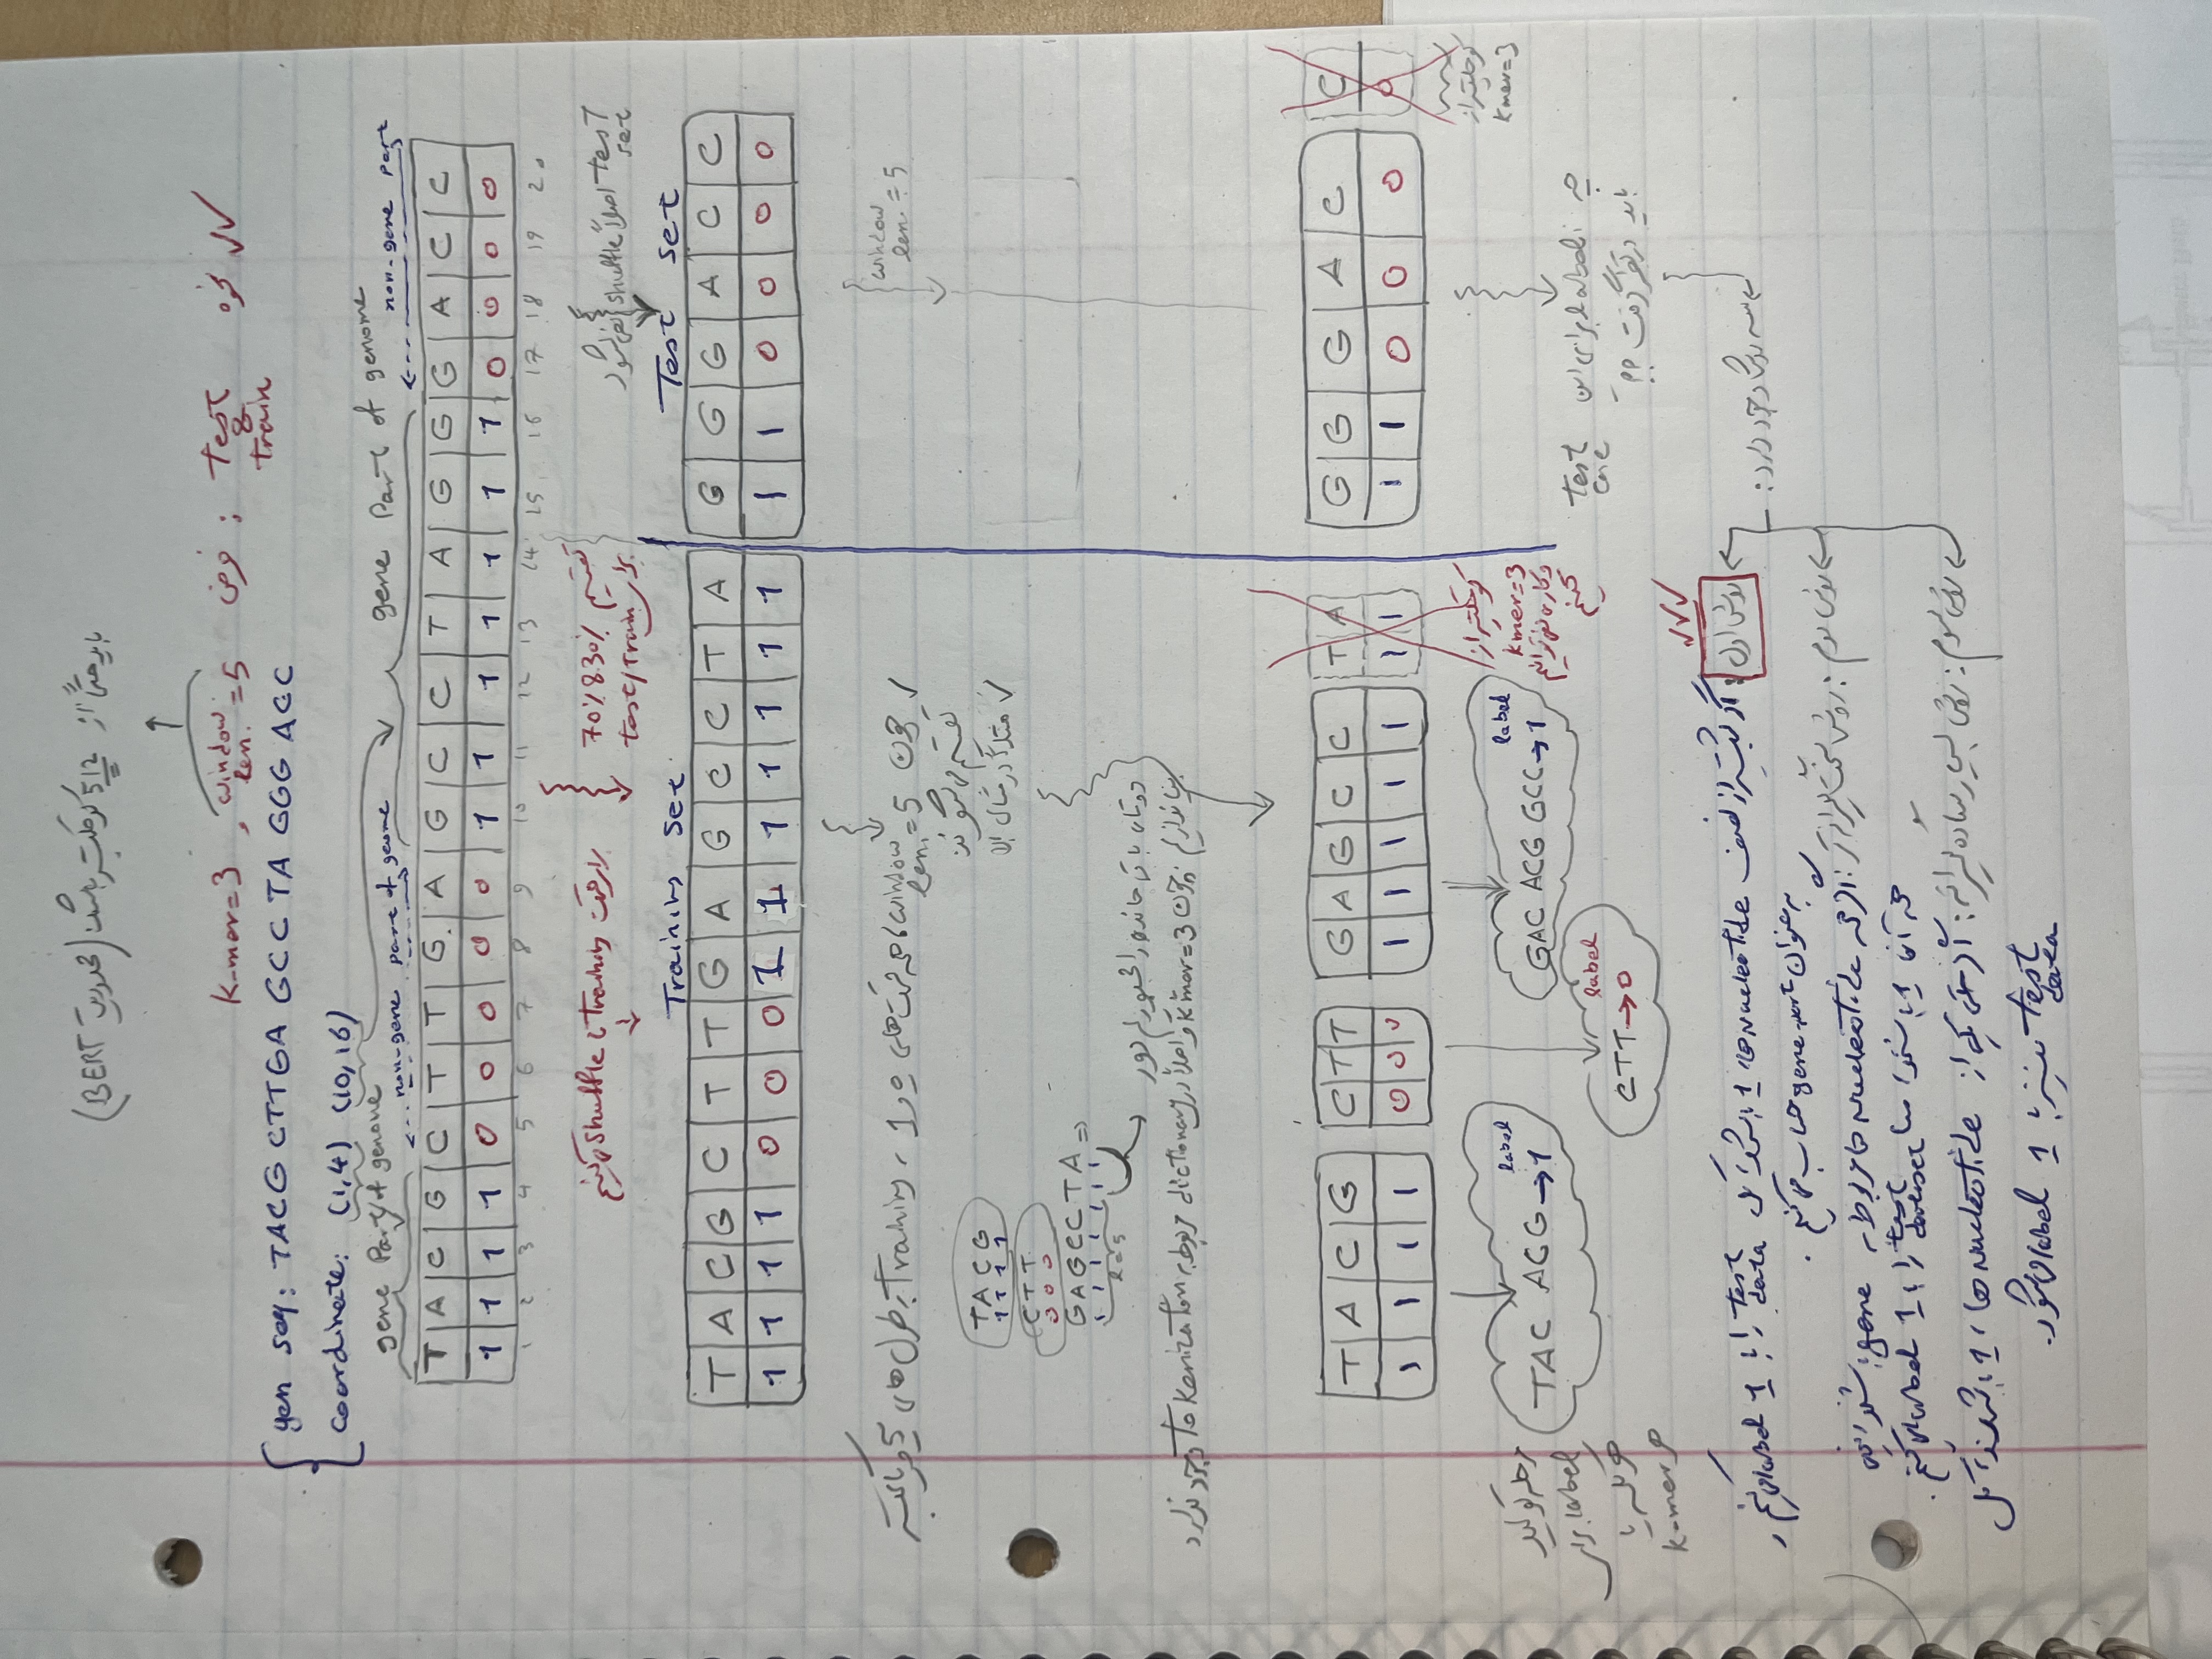 باید حتماً از 512 کوچکتر باشد (محدودیت BERT)
✓✓ نحوه Test & Train : فرض window len. = 5 , K-mer=3
gen seq: TACG CTTGA GCC TA GGG ACC
coordinate: (1,4) (10,16)
gene Part of genome
non-gene part of geome
gene Part of genome
non-gene part
T A C G C T T G A G C C T A G G G A C C
1 1 1 1 0 0 0 0 0 1 1 1 1 1 1 1 0 0 0 0
1 2 3 4 5 6 7 8 9 10 11 12 13 14 15 16 17 18 19 20
قسمت Training را shuffle می‌کنیم
تقسیم 70% & 30%
برای test/train
test set اصلاً shuffle نمی‌شود
Training set
T A C G C T T G A G C C T A
1 1 1 1 0 0 0 1 1 1 1 1 1 1
Test set
G G G A C C
1 1 0 0 0 0
✓ چون window len. = 5 ، همه قسمت‌های 0 و 1 ، Training به طول های 5 و یا کمتر
تقسیم می‌شوند
✓ مثلاً در مثال بالا
window len. = 5
TACG
1 1 1 1
CTT
0 0 0
GAGCCTA =>
1 1 1 1 1 1 1
l=5
دوتای باقی مانده را مجبوریم دور
بیاندازیم چون kmer=3 و اصلاً در dictionary مربوط به Tokenization وجود ندارد
T A C G
1 1 1 1
C T T
0 0 0
G A G C C
1 1 1 1 1
T A
1 1
G G G A C
1 1 0 0 0
C
0
کوچکتر از
kmer=3
و کاری نمی‌توانیم
کنیم
کوچکتر از
kmer=3
مرحله تولید
label برای
هر کلمه یا
هر k-mer
label
TAC ACG → 1
label
GAC ACG GCC → 1
label
CTT → 0
چه labelای برای این test case
باید در نظر گرفت ؟؟
سه روش وجود دارد :
✓✓✓
روش اول : اگر بیشتر از نصف nucleotide ها، 1 باشد کل test data را با 1 label می‌کنیم و
به عنوان gene part حساب می‌کنیم .
روش دوم : روش سخت‌گیرانه‌تر : اگر همه nucleotide ها مربوط به gene باشند یعنی
همه آنها 1 باشند test dataset را با 1 label می‌کنیم .
روش سوم : روش بسیار ساده‌گیرانه : اگر حتی یکی از nucleotide ها، 1 باشد کل
test data نیز با 1 label می‌شود.